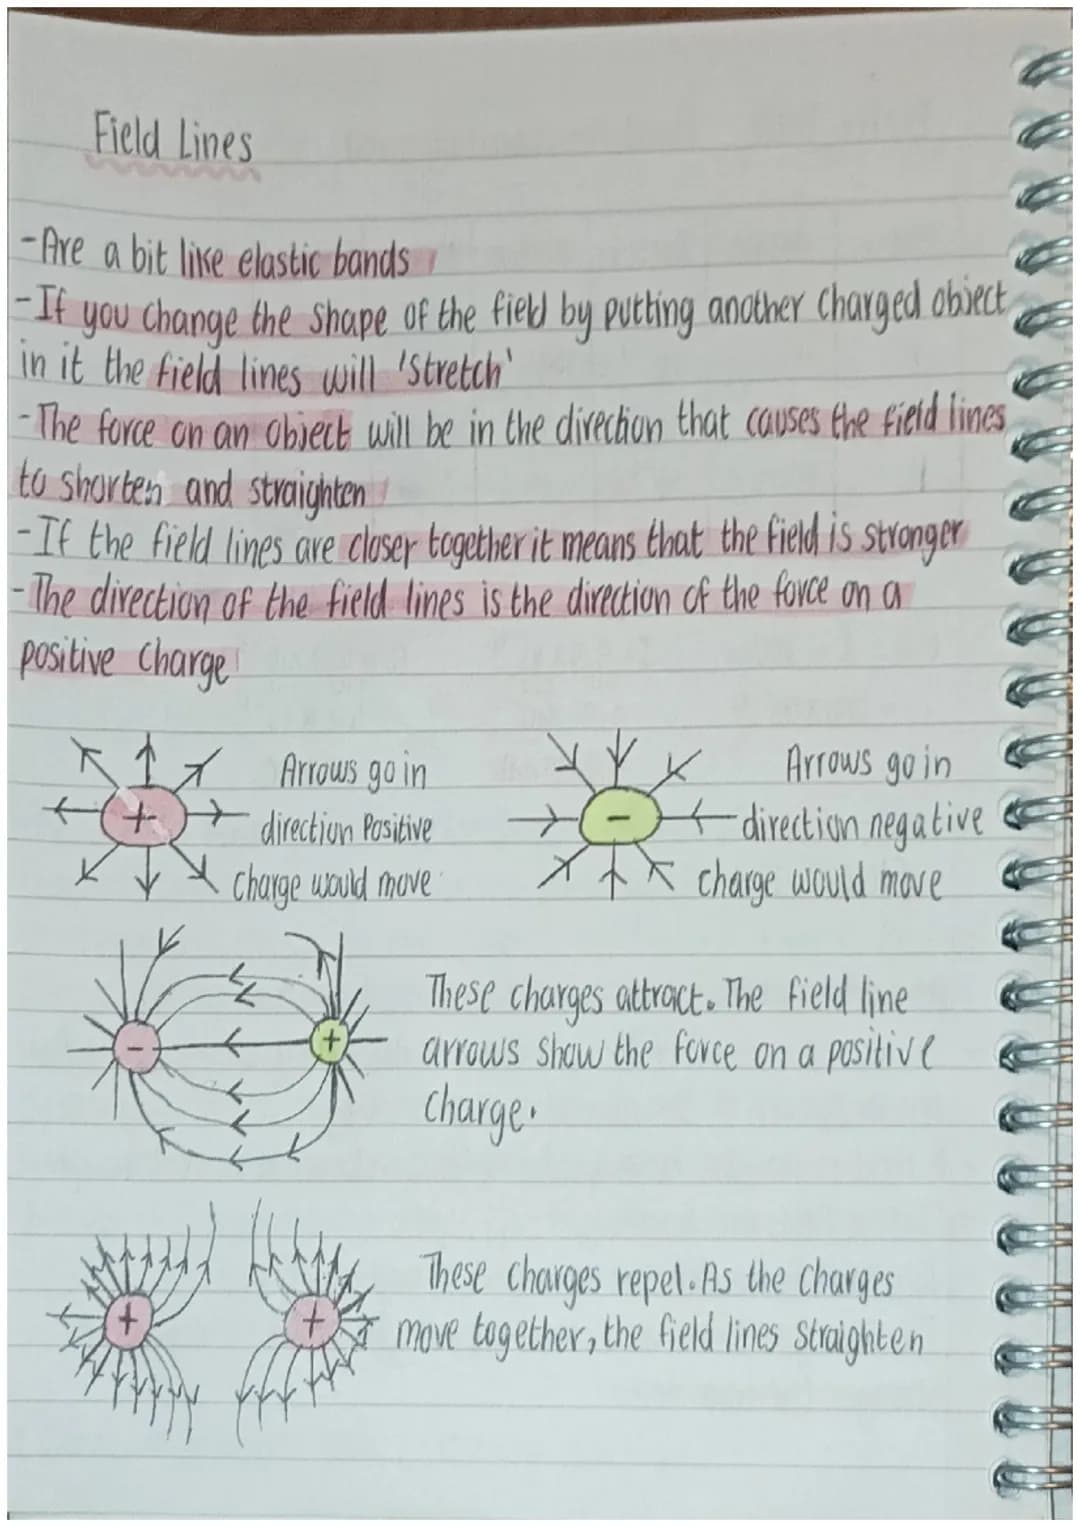 Field Lines
-Are a bit like elastic bands
-If you change the shape of the field by putting another charged object
in it the field lines will 'stretch'
-The force on an object will be in the direction that causes the field lines
to shorten and straighten
-If the field lines are closer together it means that the field is stronger
-The direction of the field lines is the direction of the force on a
positive charge
+
Arrows go in
direction Positive
charge would move
-
Arrows go in
direction negative
charge would move
- +
These charges attract. The field line
arrows show the force on a positive
charge.
+ +
These charges repel. As the charges
move together, the field lines straighten